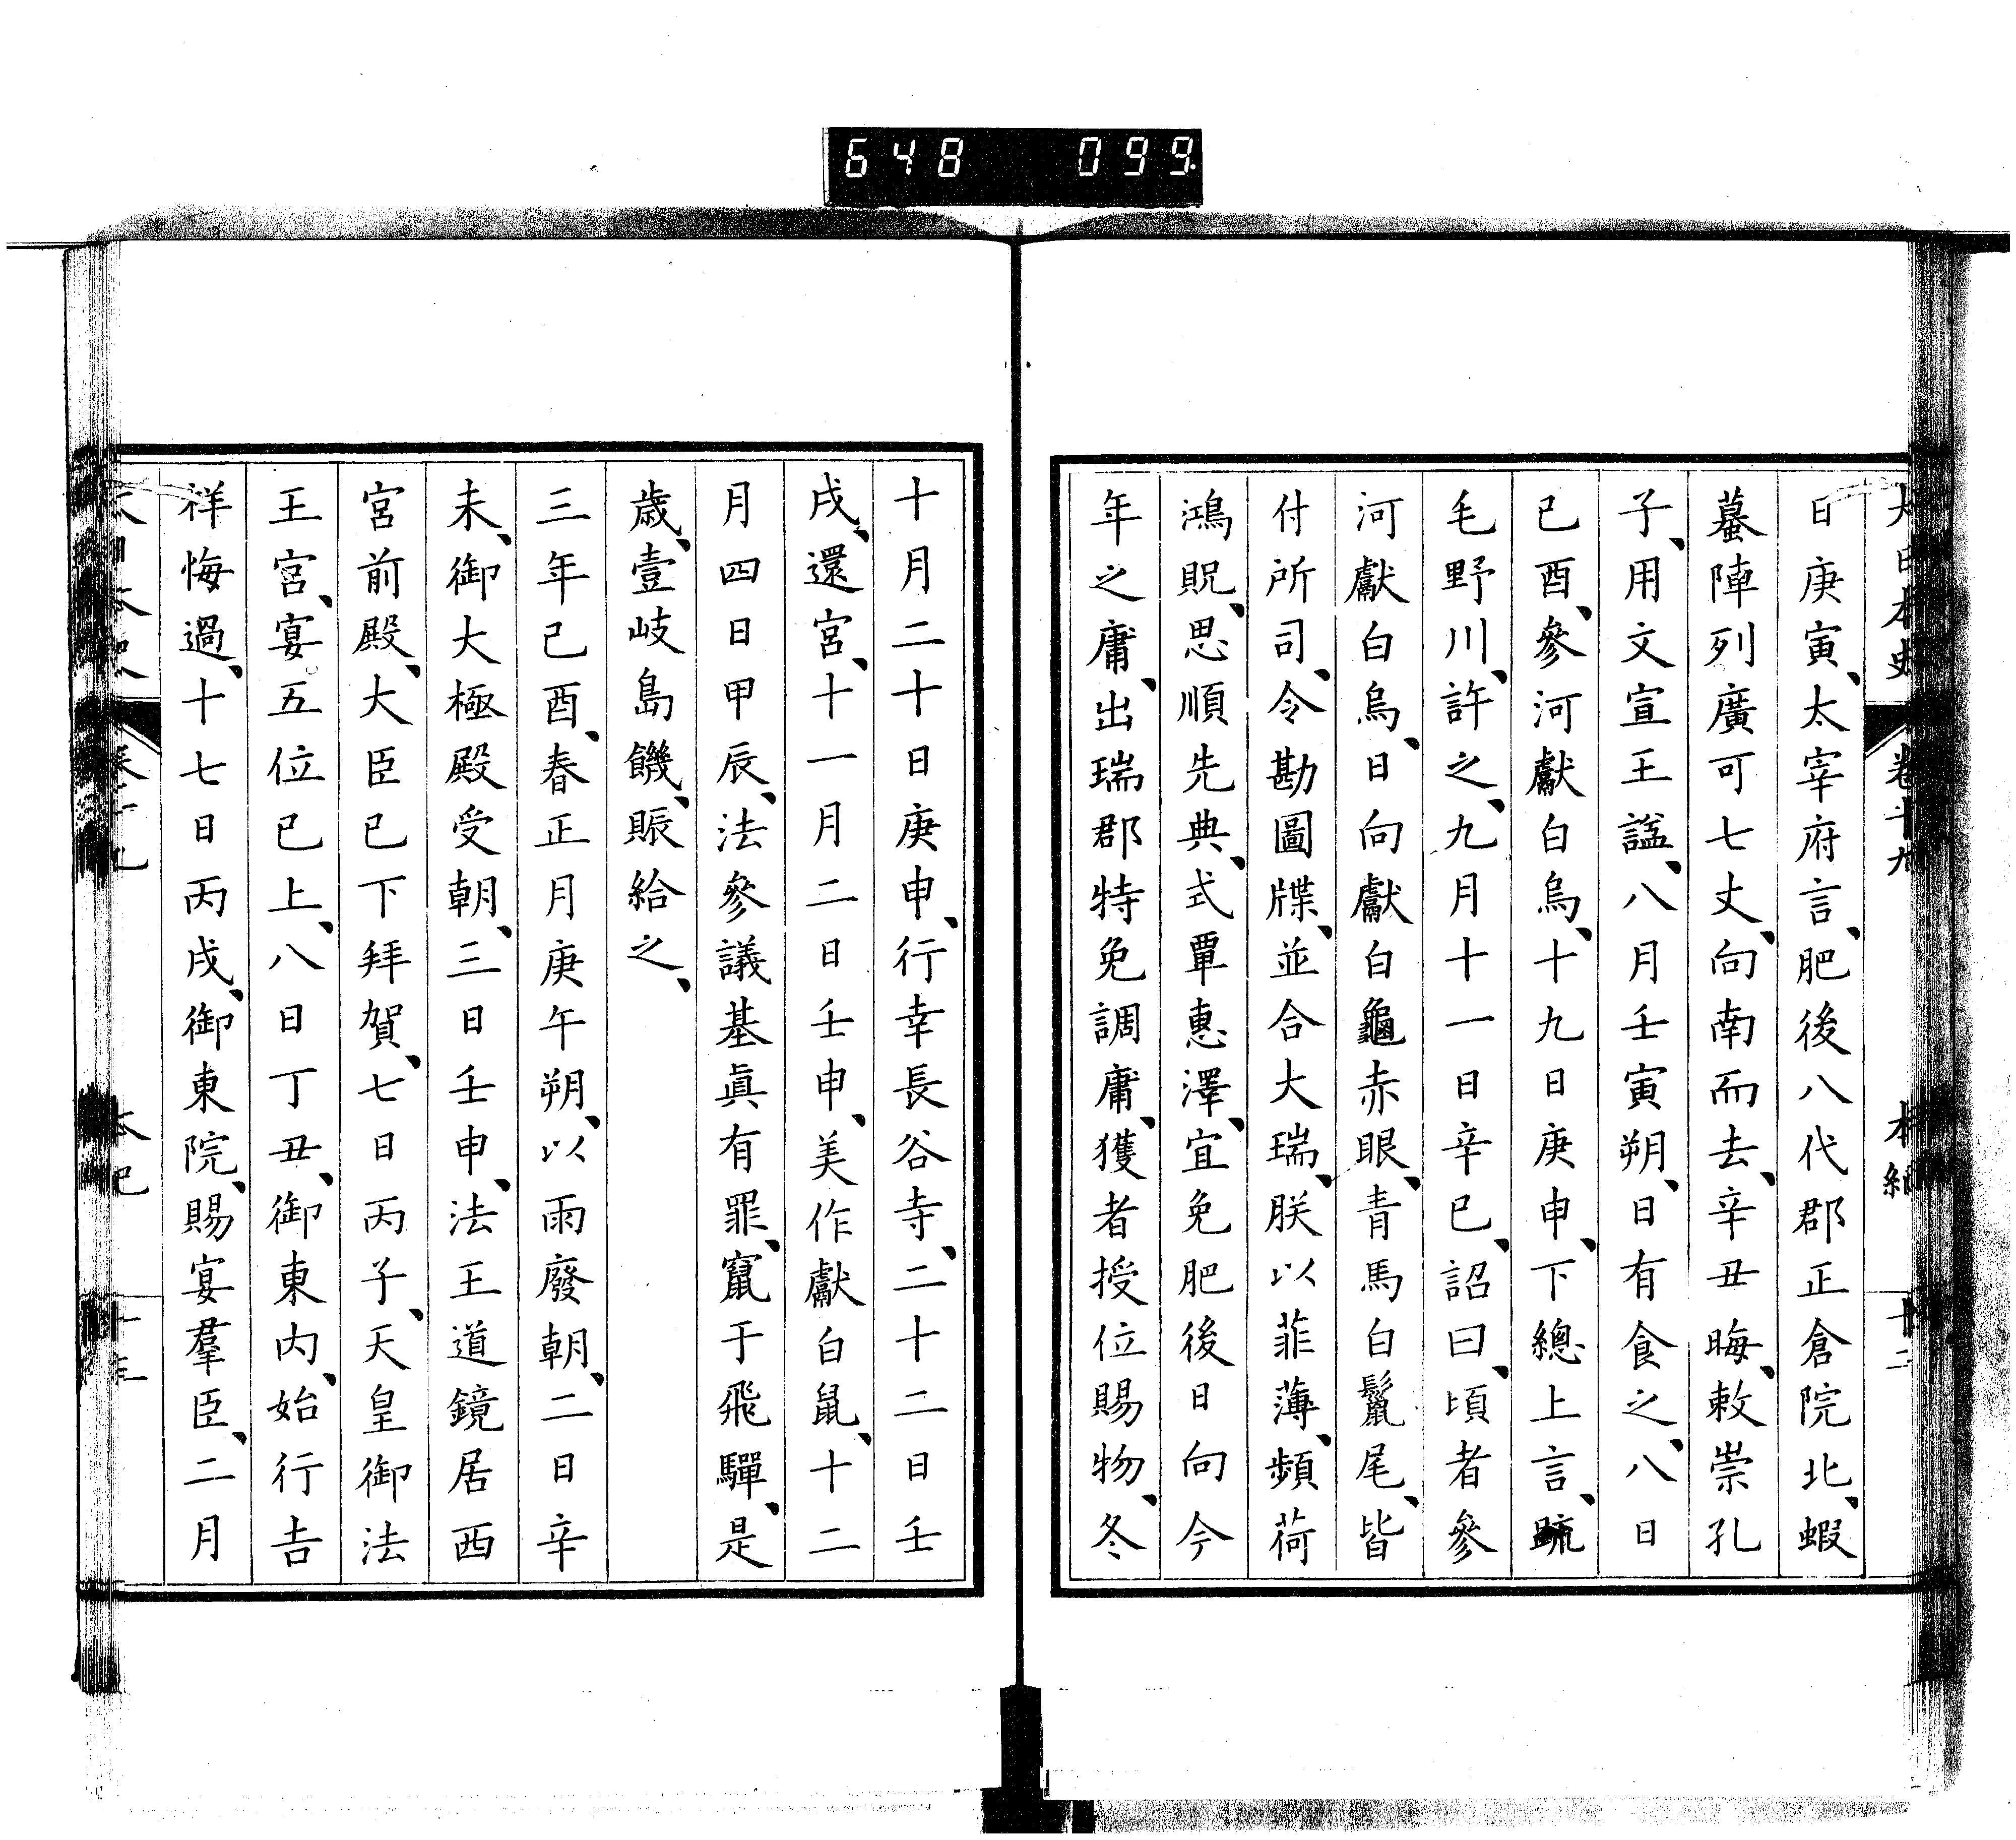 648 099
大日本史 卷十九 本紀 十二
日庚寅、太宰府言、肥後八代郡正倉院北、蝦
蟇陣列廣可七丈、向南而去、辛丑晦、敕崇孔
子、用文宣王謚、八月壬寅朔、日有食之、八日
己酉、參河獻白烏、十九日庚申、下總上言、疏
毛野川、許之、九月十一日辛巳、詔曰、頃者參
河獻白烏、日向獻白龜赤眼、青馬白鬣尾、皆
付所司、令勘圖牒、並合大瑞、朕以菲薄、頻荷
鴻貺、思順先典、式覃惠澤、宜免肥後日向今
年之庸、出瑞郡特免調庸、獲者授位賜物、冬
十月二十日庚申、行幸長谷寺、二十二日壬
戌、還宮、十一月二日壬申、美作獻白鼠、十二
月四日甲辰、法參議基眞有罪、竄于飛驒、是
歲、壹岐島饑、賑給之、
三年己酉、春正月庚午朔、以雨廢朝、二日辛
未、御大極殿受朝、三日壬申、法王道鏡居西
宮前殿、大臣已下拜賀、七日丙子、天皇御法
王宮、宴五位已上、八日丁丑、御東内、始行吉
祥悔過、十七日丙戌、御東院、賜宴羣臣、二月